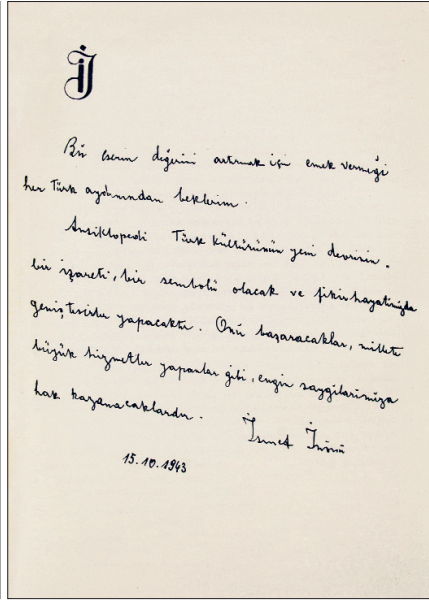 İJ
Bu eserin değerini artırmak için emek vermeği
her Türk aydınından beklerim.
Ansiklopedi Türk kültürünün yeni devrinin
bir işareti, bir sembolü olacak ve fikir hayatımızda
geniş tesirler yapacaktır. Onu başaracaklar, millete
büyük hizmetler yapanlar gibi, engin saygılarımıza
hak kazanacaklardır.
İsmet İnönü
15.10.1943